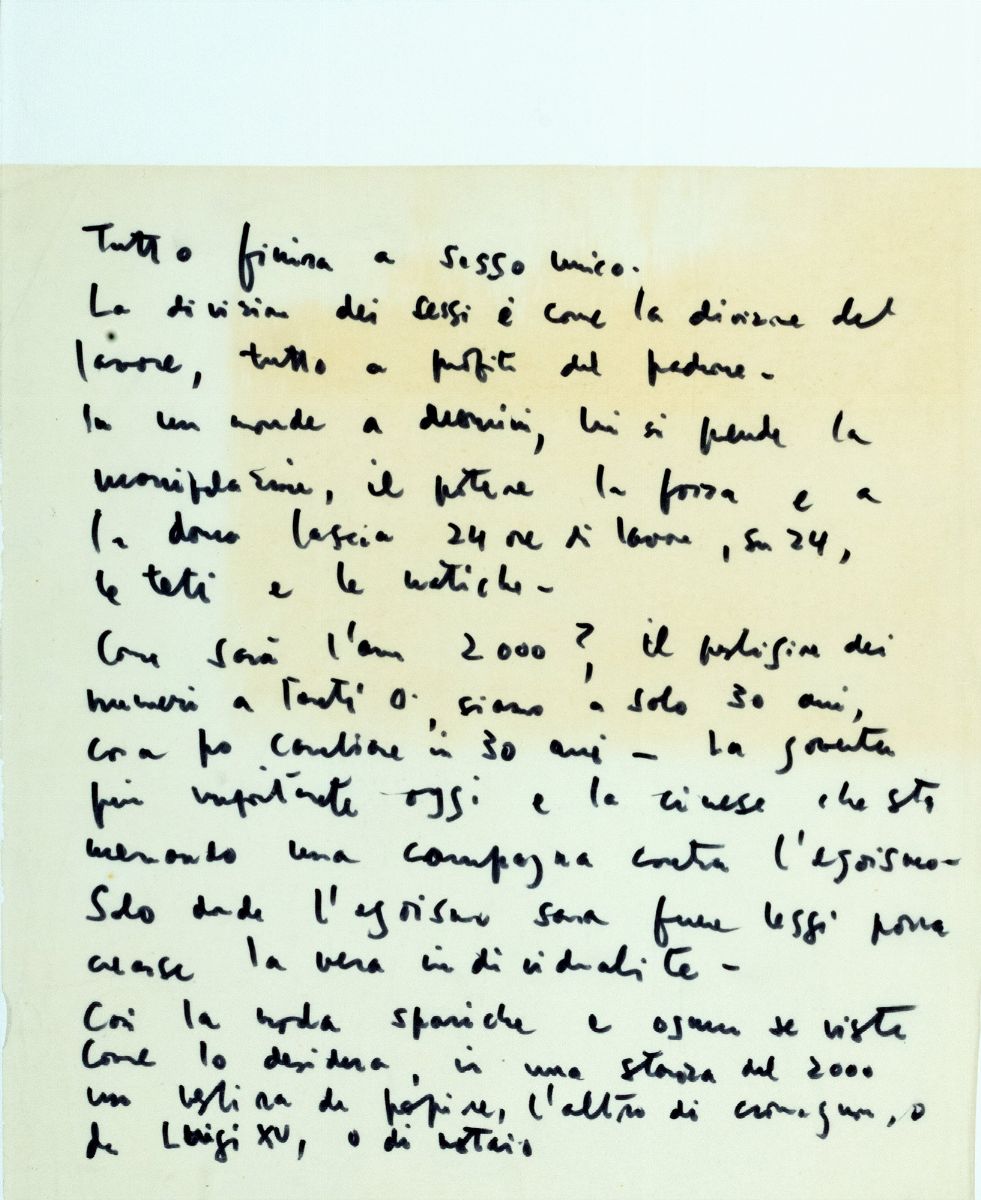 Tutto finira a sesso unico.
La division dei sessi è come la divisione del
lavore, tutto a profiti del padrone -
In un monde a domini, lui si prende la
manipolazione, il potere la forza e a
la donna lascia 24 ore di lavoro, su 24,
le teti e le natiche -
Come sarà l'ann 2000?, il prestigire dei
numeri a tanti 0, siamo a solo 30 ani,
cosa po cambiare in 30 ani - La gioventu
piu importante oggi e la cinese che sta
menando una campagna contra l'egoismo -
Solo dude l'egoismo sara fuore leggi porra
crearse la vera individualite -
Cosi la moda sparische e ognun se viste
Come lo desidera, in una stanza del 2000
uno vestira da papire, l'altro di cromagnon, o
da Luigi XV, o di notaio